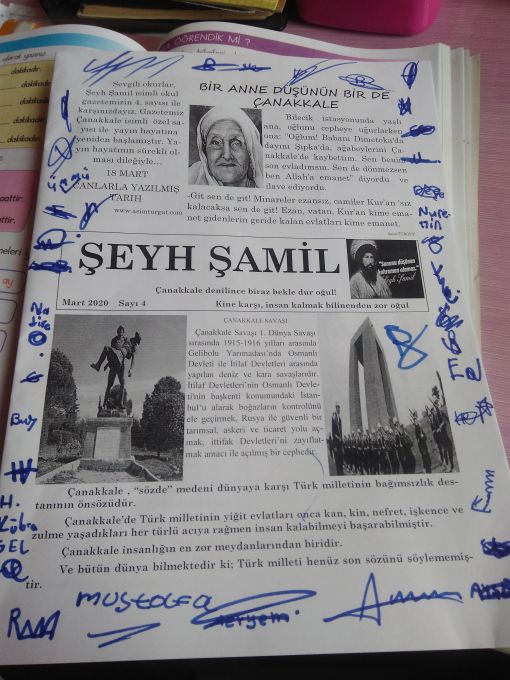 ÖĞRENDİK Mİ ?
olarak yazınız.
dakikadır.
dakikadır.
dakikadır.
Sevgili okurlar,
Şeyh Şamil isimli okul
gazetemizin 4. sayısı ile
karşınızdayız. Gazetemiz
Çanakkale isimli özel sa-
yısı ile yayın hayatına
yeniden başlamıştır. Ya-
yın hayatının sürekli ol-
ması dileğiyle...
18 MART
CANLARLA YAZILMIŞ
TARİH
www.asimturgut.com
BİR ANNE DÜŞÜNÜN BİR DE
ÇANAKKALE
Bilecik istasyonunda yaşlı
ana, oğlunu cepheye uğurlarken
ona: "Oğlum! Babanı Dimetoka'da
dayını Şıpka'da, ağabeylerini Ça-
nakkale'de kaybettim. Sen benim
son evladımsın. Sen de dönmezsen
ben Allah'a emanet" diyordu ve
ilave ediyordu.
-Git sen de git! Minareler ezansız, camiler Kur'an 'sız
kalacaksa sen de git! Ezan, vatan, Kur'an kime ema-
net gidenlerin geride kalan evlatları kime emanet.
ŞEYH ŞAMİL
Çanakkale denilince biraz bekle dur oğul!
Mart 2020 Sayı 4
Kine karşı, insan kalmak bilinenden zor oğul
"Sonunu düşünen
kahraman olamaz."
Şeyh Şamil
ÇANAKKALE SAVAŞI
Çanakkale Savaşı 1. Dünya Savaşı
sırasında 1915-1916 yılları arasında
Gelibolu Yarımadası'nda Osmanlı
Devleti ile İtilaf Devletleri arasında
yapılan deniz ve kara savaşlarıdır.
İtilaf Devletleri'nin Osmanlı Devle-
ti'nin başkenti konumundaki İstan-
bul'u alarak boğazların kontrolünü
ele geçirmek, Rusya ile güvenli bir
tarımsal, askeri ve ticaret yolu aç-
mak, ittifak Devletleri'ni zayıflat-
mak amacı ile açılmış bir cephedir.
Çanakkale , "sözde" medeni dünyaya karşı Türk milletinin bağımsızlık des-
tanının önsözüdür.
Çanakkale'de Türk milletinin yiğit evlatları onca kan, kin, nefret, işkence ve
zulme yaşadıkları her türlü acıya rağmen insan kalabilmeyi başarabilmiştir.
Çanakkale insanlığın en zor meydanlarından biridir.
Ve bütün dünya bilmektedir ki; Türk milleti henüz son sözünü söylememiş-
tir.
MUSTAFA